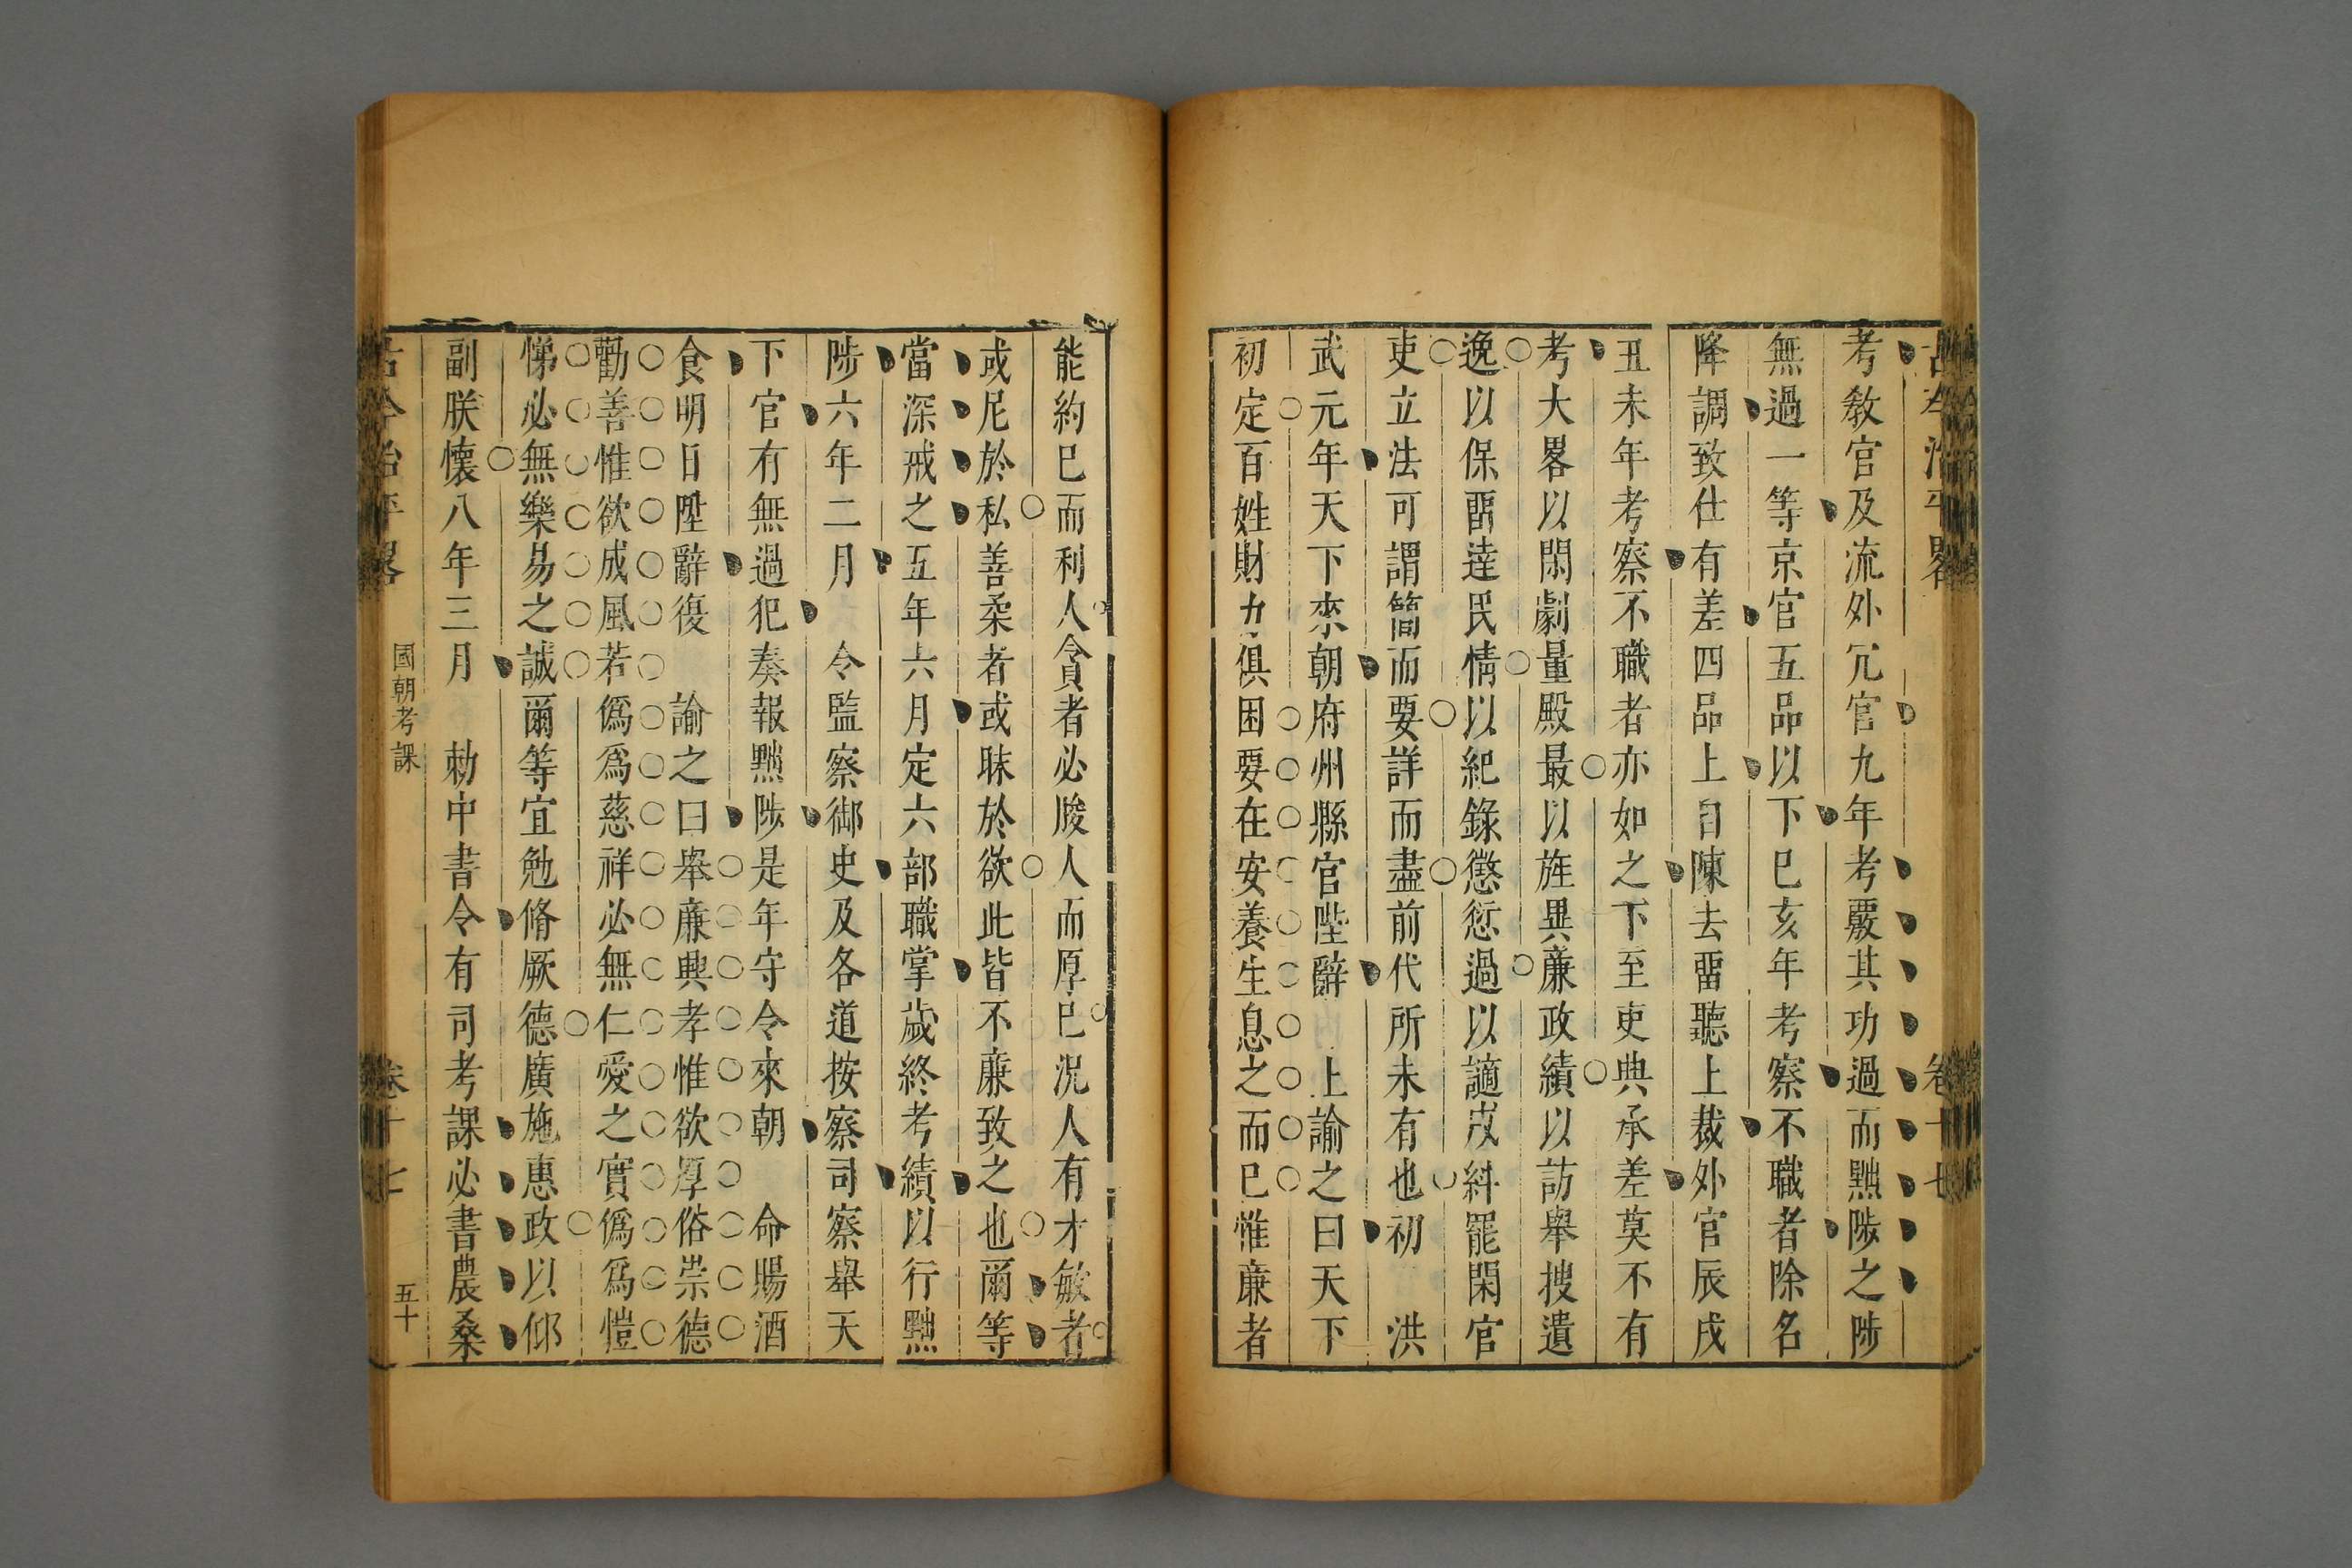 古今治平畧 卷十七
考教官及流外冗官九年考覈其功過而黜陟之陟
無過一等京官五品以下巳亥年考察不職者除名
降調致仕有差四品上自陳去畱聽上裁外官辰戌
丑未年考察不職者亦如之下至吏典承差莫不有
考大畧以閑劇量殿最以旌異亷政績以訪舉搜遺
逸以保畱達民情以紀錄懲愆過以讁䇿糾罷閑官
吏立法可謂簡而要詳而盡前代所未有也初 洪
武元年天下來朝府州縣官陛辭 上諭之曰天下
初定百姓財力俱困要在安養生息之而巳惟亷者
能約巳而利人貪者必朘人而厚巳況人有才敏者
或尼於私善柔者或昧於欲此皆不亷致之也爾等
當深戒之五年六月定六部職掌歲終考績以行黜
陟六年二月 令監察御史及各道按察司察舉天
下官有無過犯奏報黜陟是年守令來朝 命賜酒
食明日陞辭復 諭之曰舉亷興孝惟欲厚俗崇德
勸善惟欲成風若僞爲慈祥必無仁愛之實僞爲愷
悌必無樂易之誠爾等宜勉脩厥德廣施惠政以仰
副朕懷八年三月 勑中書令有司考課必書農桑
古今治平畧 國朝考課 卷十七 五十